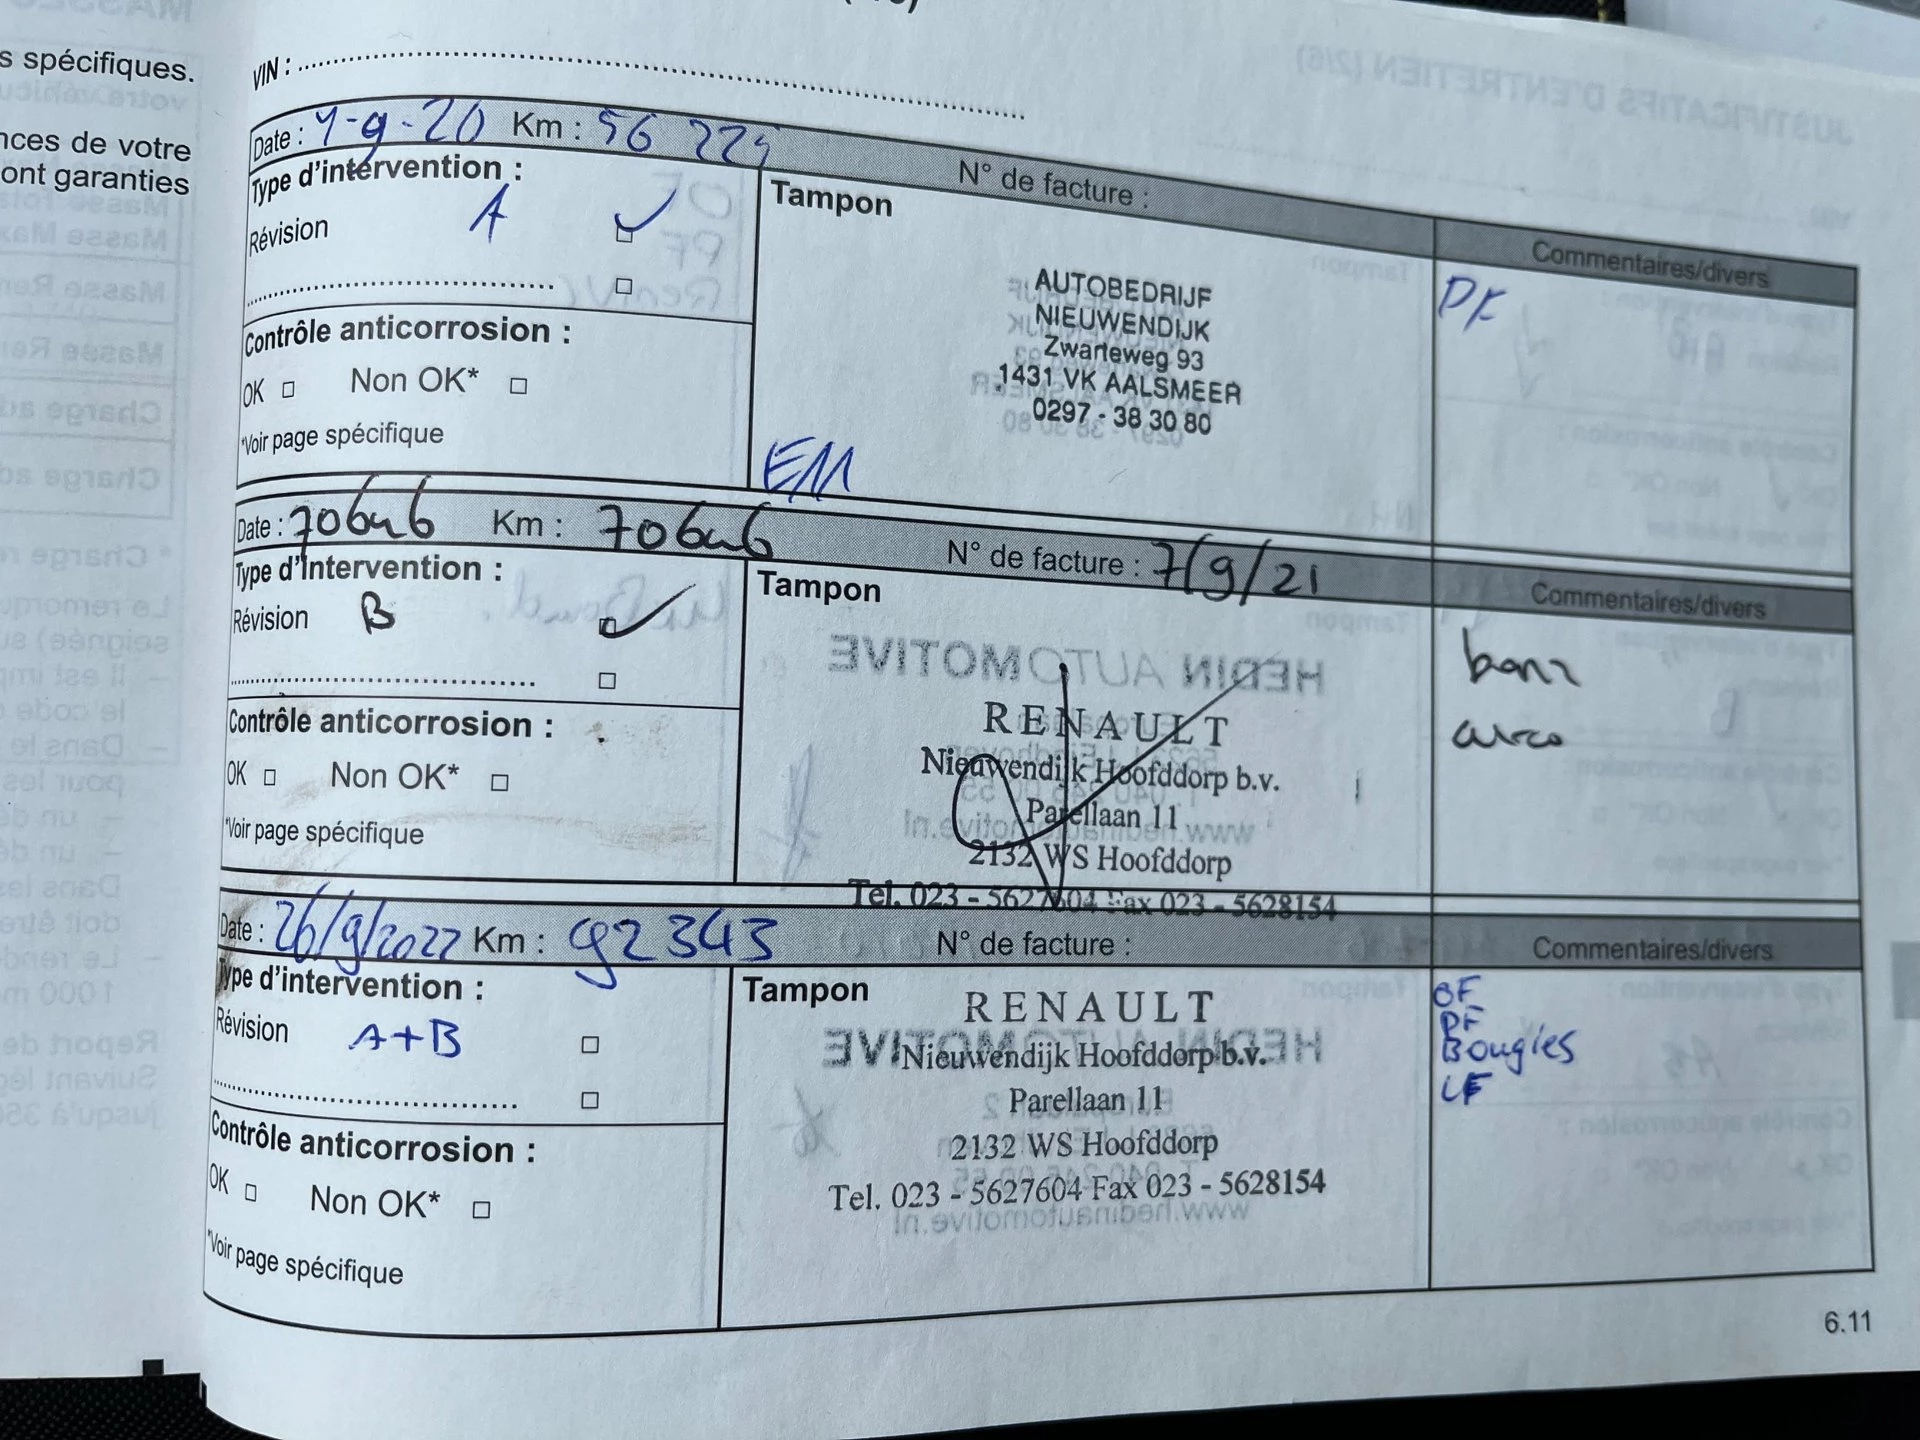 s spécifiques.
nces de votre
ont garanties
VIN :
Date : 9-20 Km : 56 225
N° de facture :
Type d'intervention :
Révision A
Contrôle anticorrosion :
OK Non OK*
*Voir page spécifique
Tampon
AUTOBEDRIJF
NIEUWENDIJK
Zwarteweg 93
1431 VK AALSMEER
0297 - 38 30 80
EM
Commentaires/divers
PF
Date : Km :
N° de facture : 7/9/21
Type d'Intervention :
Révision B
Contrôle anticorrosion :
OK Non OK*
*Voir page spécifique
Tampon
RENAULT
Nieuwendijk Hoofddorp b.v.
Parellaan 11
2132 WS Hoofddorp
Tel. 023 - 5627604 Fax 023 - 5628154
Commentaires/divers
airco
Date : 26/9/2022 Km : 92343
N° de facture :
Type d'intervention :
Révision A+B
Contrôle anticorrosion :
OK Non OK*
*Voir page spécifique
Tampon
RENAULT
Nieuwendijk Hoofddorp b.v.
Parellaan 11
2132 WS Hoofddorp
Tel. 023 - 5627604 Fax 023 - 5628154
Commentaires/divers
OF
PF
Bougies
LF
6.11